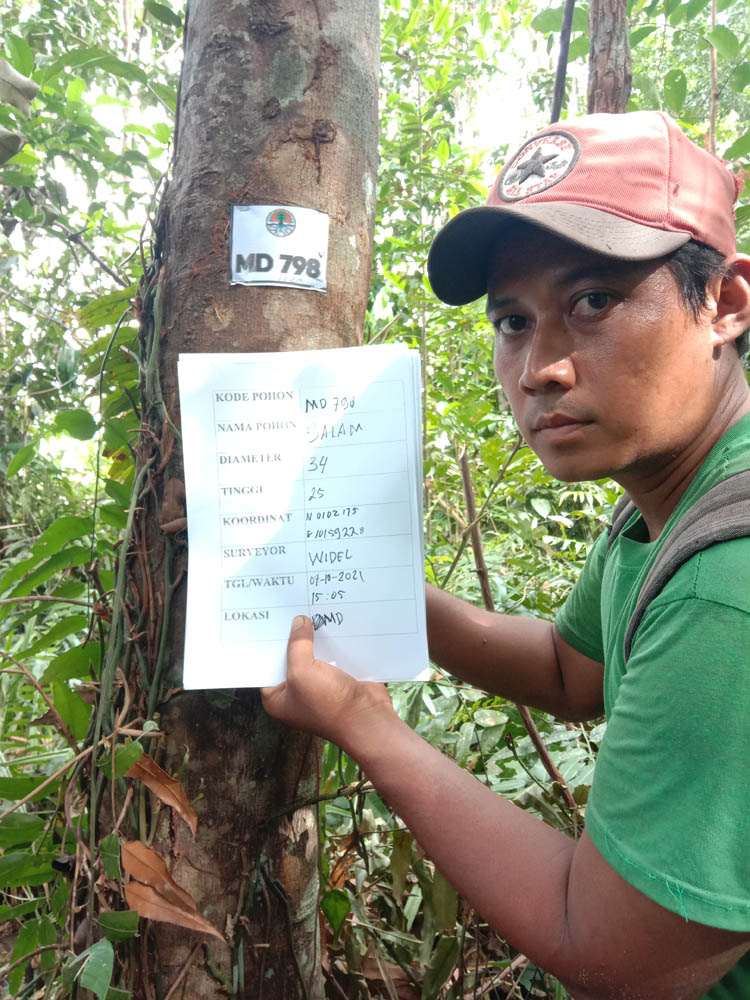 CONVERSE
ALL STAR
MD 798
KODE POHON MD 798
NAMA POHON BALAM
DIAMETER 34
TINGGI 25
KOORDINAT N 0102175
E 10159228
SURVEYOR WIDEL
TGL/WAKTU 07-10-2021
15:05
LOKASI MD